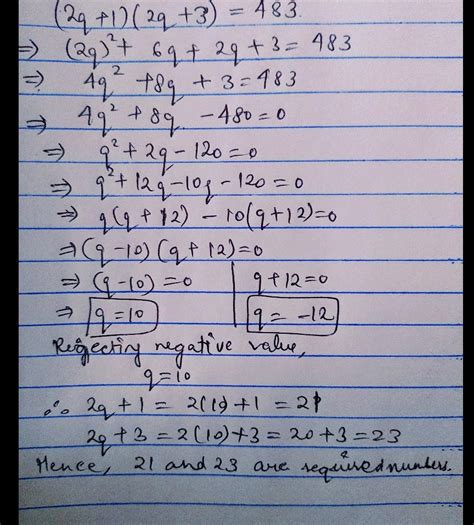 (2q+1)(2q+3) = 483
⇒ (2q)²+ 6q+ 2q+3 = 483
⇒ 4q² +8q +3 = 483
⇒ 4q² + 8q - 480 = 0
⇒ q² + 2q - 120 = 0
⇒ q²+12q-10q-120 = 0
⇒ q(q+12) - 10(q+12)=0
⇒ (q-10)(q+12)=0
⇒ (q-10) = 0 | q+12=0
⇒ q=10 | q = -12
Rejecting negative value,
q=10
∴ 2q+1 = 2(10)+1 = 21
2q+3 = 2(10)+3 = 20+3 = 23
Hence, 21 and 23 are required numbers.